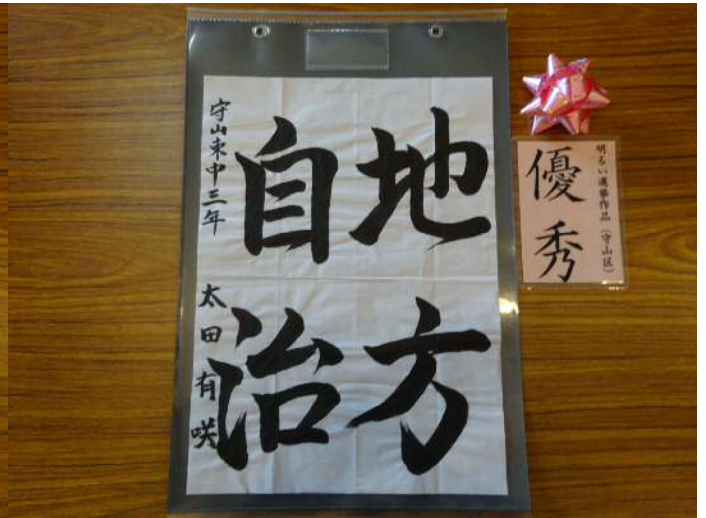 地方
自治
守山東中三年 太田有咲
明るい選挙作品（守山区）
優秀